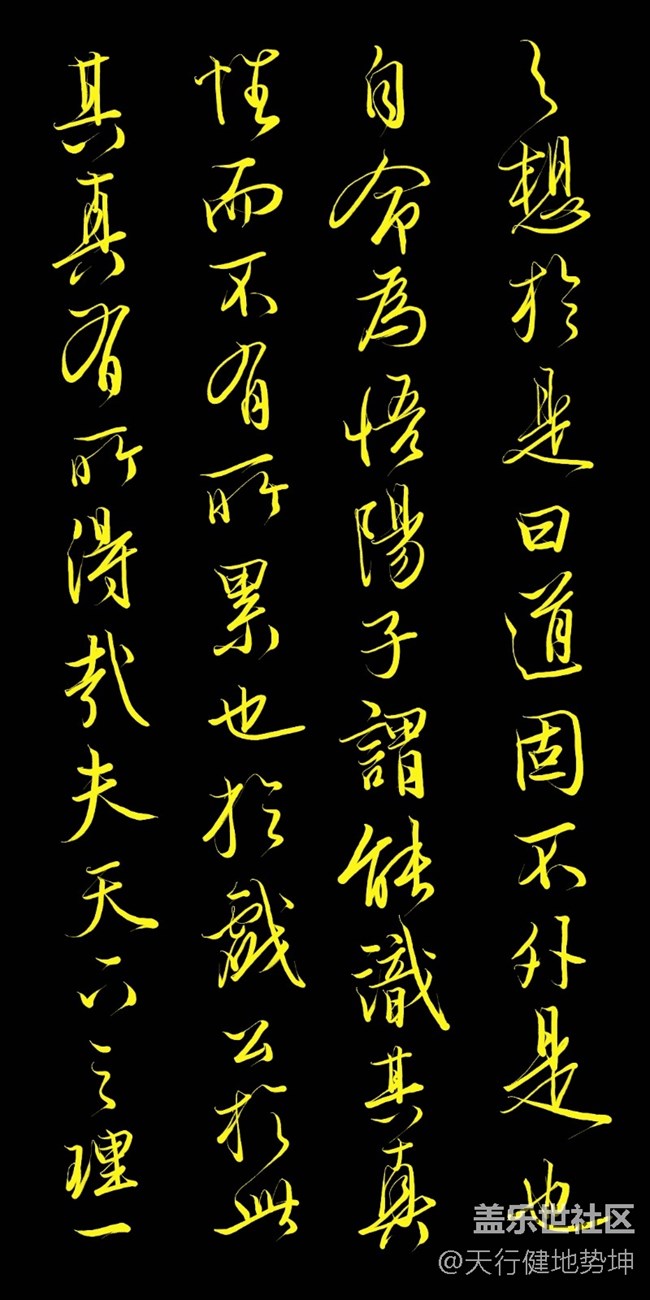 之想於是曰道固不外是也
自命為悟陽子謂能識其真
性而不有所累也於戲公於此
其真有所得哉夫天下之理一
盖乐世社区
@天行健地势坤